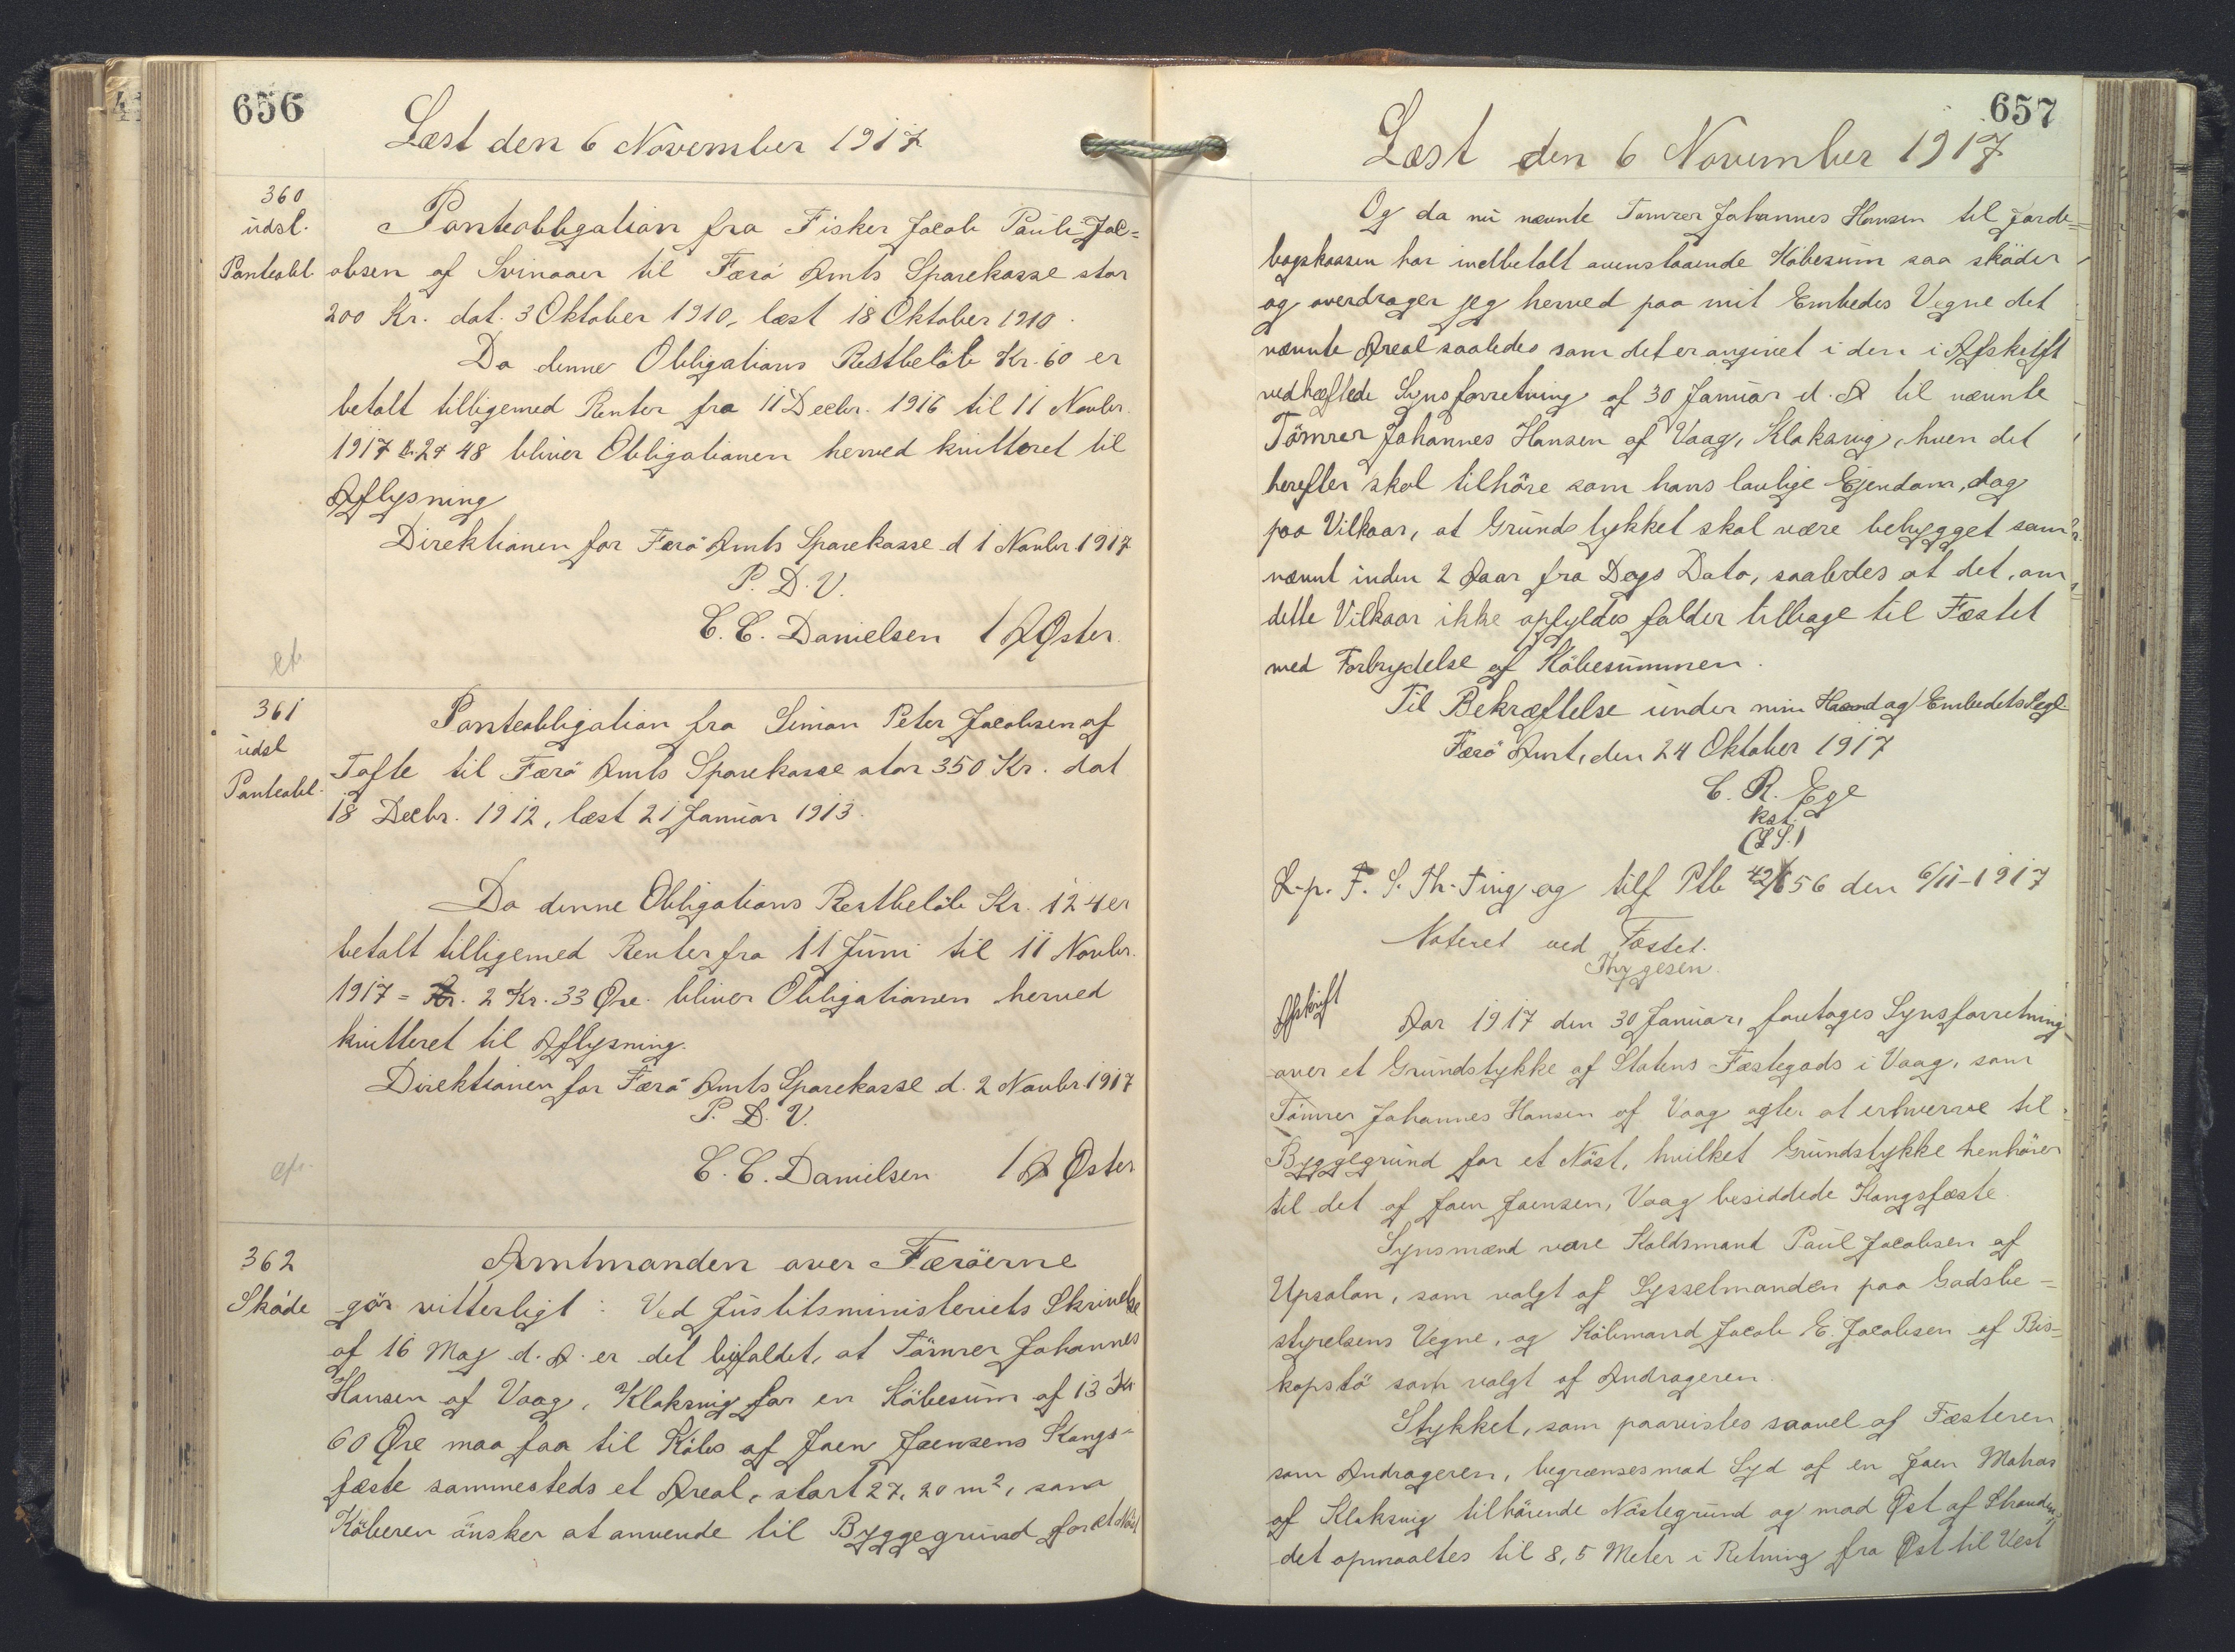 656
Læst den 6 November 1917
360
udsl.
Panteobl
Panteobligation fra Fisker Jacob Pauli Jac=
obsen af Svinaaer til Færö Amts Sparekasse stor
200 Kr. dat. 3 Oktober 1910, læst 18 Oktober 1910.
Da denne Obligations Restbelöb Kr. 60 er
betalt tilligemed Renter fra 11 Decbr. 1916 til 11 Novbr.
1917 Kr. 2 48 bliver Obligationen herved kvitteret til
Aflysning
Direktionen for Færö Amts Sparekasse d 1 Novbr. 1917
P. D. V.
C. C. Danielsen / A Øster.
361
udsl
Panteobl.
Panteobligation fra Simon Peter Jacobsen af
Tofte til Færö Amts Sparekasse stor 350 Kr. dat
18 Decbr. 1912, læst 21 Januar 1913.
Da denne Obligations Restbelöb Kr. 124 er
betalt tilligemed Renter fra 11 Juni til 11 Novbr.
1917 = Kr. 2 Kr. 33 Øre. bliver Obligationen herved
kvitteret til Aflysning.
Direktionen for Færö Amts Sparekasse d. 2 Novbr 1917
P. D. V.
C. C. Danielsen / A Øster
362
Sköde
Amtmanden over Færöerne
gör vitterligt : Ved Justitsministeriets Skrivelse
af 16 Maj d. A. er det bifaldet, at Tömrer Johannes
Hansen af Vaag, Klaksvig for en Köbesum af 13 Kr
60 Øre maa faa til Köbs af Joen Joensens Kongs=
fæste sammesteds et Areal, stort 27,20 m², som
Köberen önsker at anvende til Byggegrund for et Nöst
657
Læst den 6 November 1917
Og da nu nævnte Tomrer Johannes Hansen til Jorde=
bogskassen har indbetalt ovenstaaende Köbesum saa sköder
og overdrager jeg herved paa mit Embedes Vegne det
nævnte Areal saaledes som det er angivet i den i Afskrift
vedhæftede Synsforretning af 30 Januar d. A til nævnte
Tömrer Johannes Hansen af Vaag, Klaksvig, hvem det
herefter skal tilhöre som hans lovlige Ejendom, dog
paa Vilkaar, at Grundstykket skal være bebygget som
nævnt inden 2 Aar fra Dags Dato, saaledes at det, om
dette Vilkaar ikke opfyldes falder tilbage til Fæstet
med Forbrydelse af Köbesummen.
Til Bekræftelse under min Haand og Embedets Segl.
Færö Amt, den 24 Oktober 1917
C. R. Ege
kst.
(L S.)
L. p. F. S. Th. Ting og tilf Ptb 42/656 den 6/11-1917
Noteret ved Fæstet.
Thygesen.
Afskrift
Aar 1917 den 30 Januar, foretoges Synsforretning
over et Grundstykke af Statens Fæstegods i Vaag, som
Tömrer Johannes Hansen af Vaag agter at erhverve til
Byggegrund for et Nöst, hvilket Grundstykke henhörer
til det af Joen Joensen, Vaag besiddede Kongsfæste.
Synsmænd vare Koldsmand Paul Jacobsen af
Upsalon, som valgt af Sysselmanden paa Godsbe=
styrelsens Vegne, og Köbmand Jacob E. Jacobsen af Bis=
kopstö som valgt af Andrageren.
Stykket, som paavistes saavel af Fæsteren
som Andrageren, begrænses mod Syd af en Joen Mohras
af Klaksvig tilhörende Nöstegrund og mod Øst af Stranden,
det opmaaltes til 8,5 Meter i Retning fra Øst til Vest